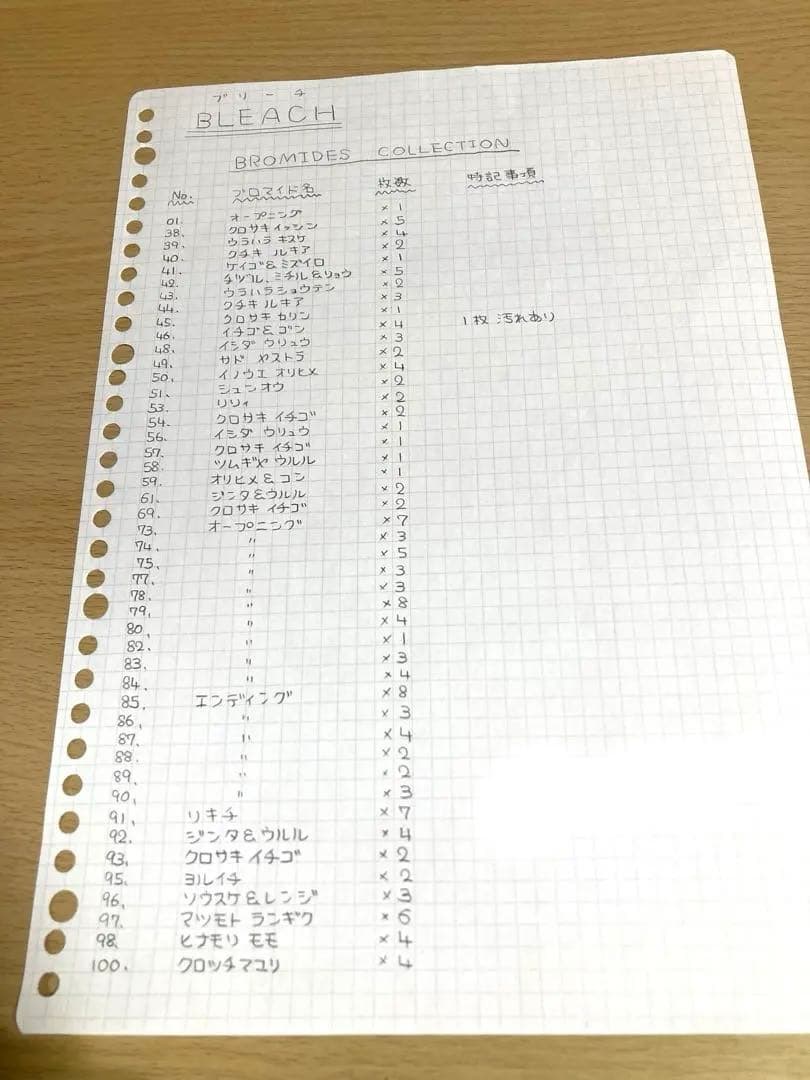 ブリーチ
BLEACH
BROMIDES COLLECTION
No. ブロマイド名 枚数 特記事項
01. オープニング ×1
38. クロサキイッシン ×5
39. ウラハラ キスケ ×4
40. クチキ ルキア ×2
41. ケイゴ&ミズイロ ×1
42. チヅル、ミチル&リョウ ×5
43. ウラハラショウテン ×2
44. クチキ ルキア ×3
45. クロサキ カリン ×1
46. イチゴ&ゴン ×4 1枚 汚れあり
48. イシダ ウリュウ ×3
49. サド ヤストラ ×2
50. イノウエ オリヒメ ×4
51. シュンオウ ×2
53. リリィ ×2
54. クロサキ イチゴ ×2
56. イシダ ウリュウ ×1
57. クロサキ イチゴ ×1
58. ツムギヤ ウルル ×1
59. オリヒメ&コン ×1
61. ジンタ&ウルル ×2
69. クロサキ イチゴ ×2
73. オープニング ×7
74. 〃 ×3
75. 〃 ×5
77. 〃 ×3
78. 〃 ×3
79. 〃 ×8
80. 〃 ×4
82. 〃 ×1
83. 〃 ×3
84. 〃 ×4
85. エンディング ×8
86. 〃 ×3
87. 〃 ×4
88. 〃 ×2
89. 〃 ×2
90. 〃 ×3
91. リキチ ×7
92. ジンタ&ウルル ×4
93. クロサキ イチゴ ×2
95. ヨルイチ ×2
96. ソウスケ&レンジ ×3
97. マツモト ランギク ×6
98. ヒナモリ モモ ×4
100. クロッチマユリ ×4